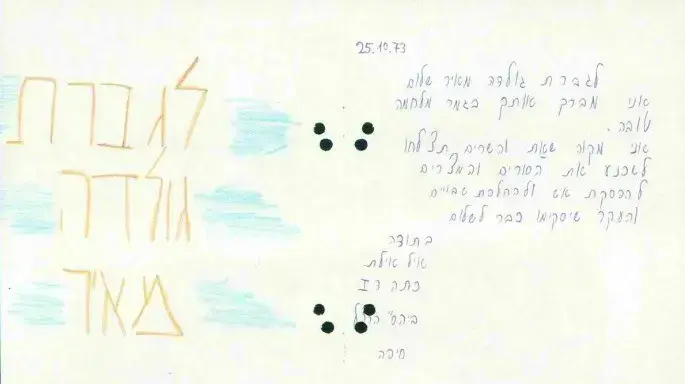 25.10.73
לגברת גולדה מאיר שלום
אני מברך אותך בגמר מלחמה
טובה.
אני מקוה שאת והשרים תצלחו
לשכנע את הסורים והמצרים
להפסקת אש ולהחלפת שבויים
והעקר שיסכימו כבר לשלום
בתודה
איל אילת
כתה
ביה"ס
חיפה
לגברת
גולדה
מאיר